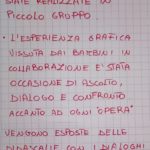 STATE REALIZZATE IN
PICCOLO GRUPPO.
• L'ESPERIENZA GRAFICA
VISSUTA DAI BAMBINI IN
COLLABORAZIONE E' STATA
OCCASIONE DI ASCOLTO,
DIALOGO E CONFRONTO
ACCANTO AD OGNI "OPERA"
VENGONO ESPOSTE DELLE
DIDASCALIE CON I DIALOGHI